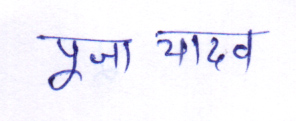 पूजा यादव